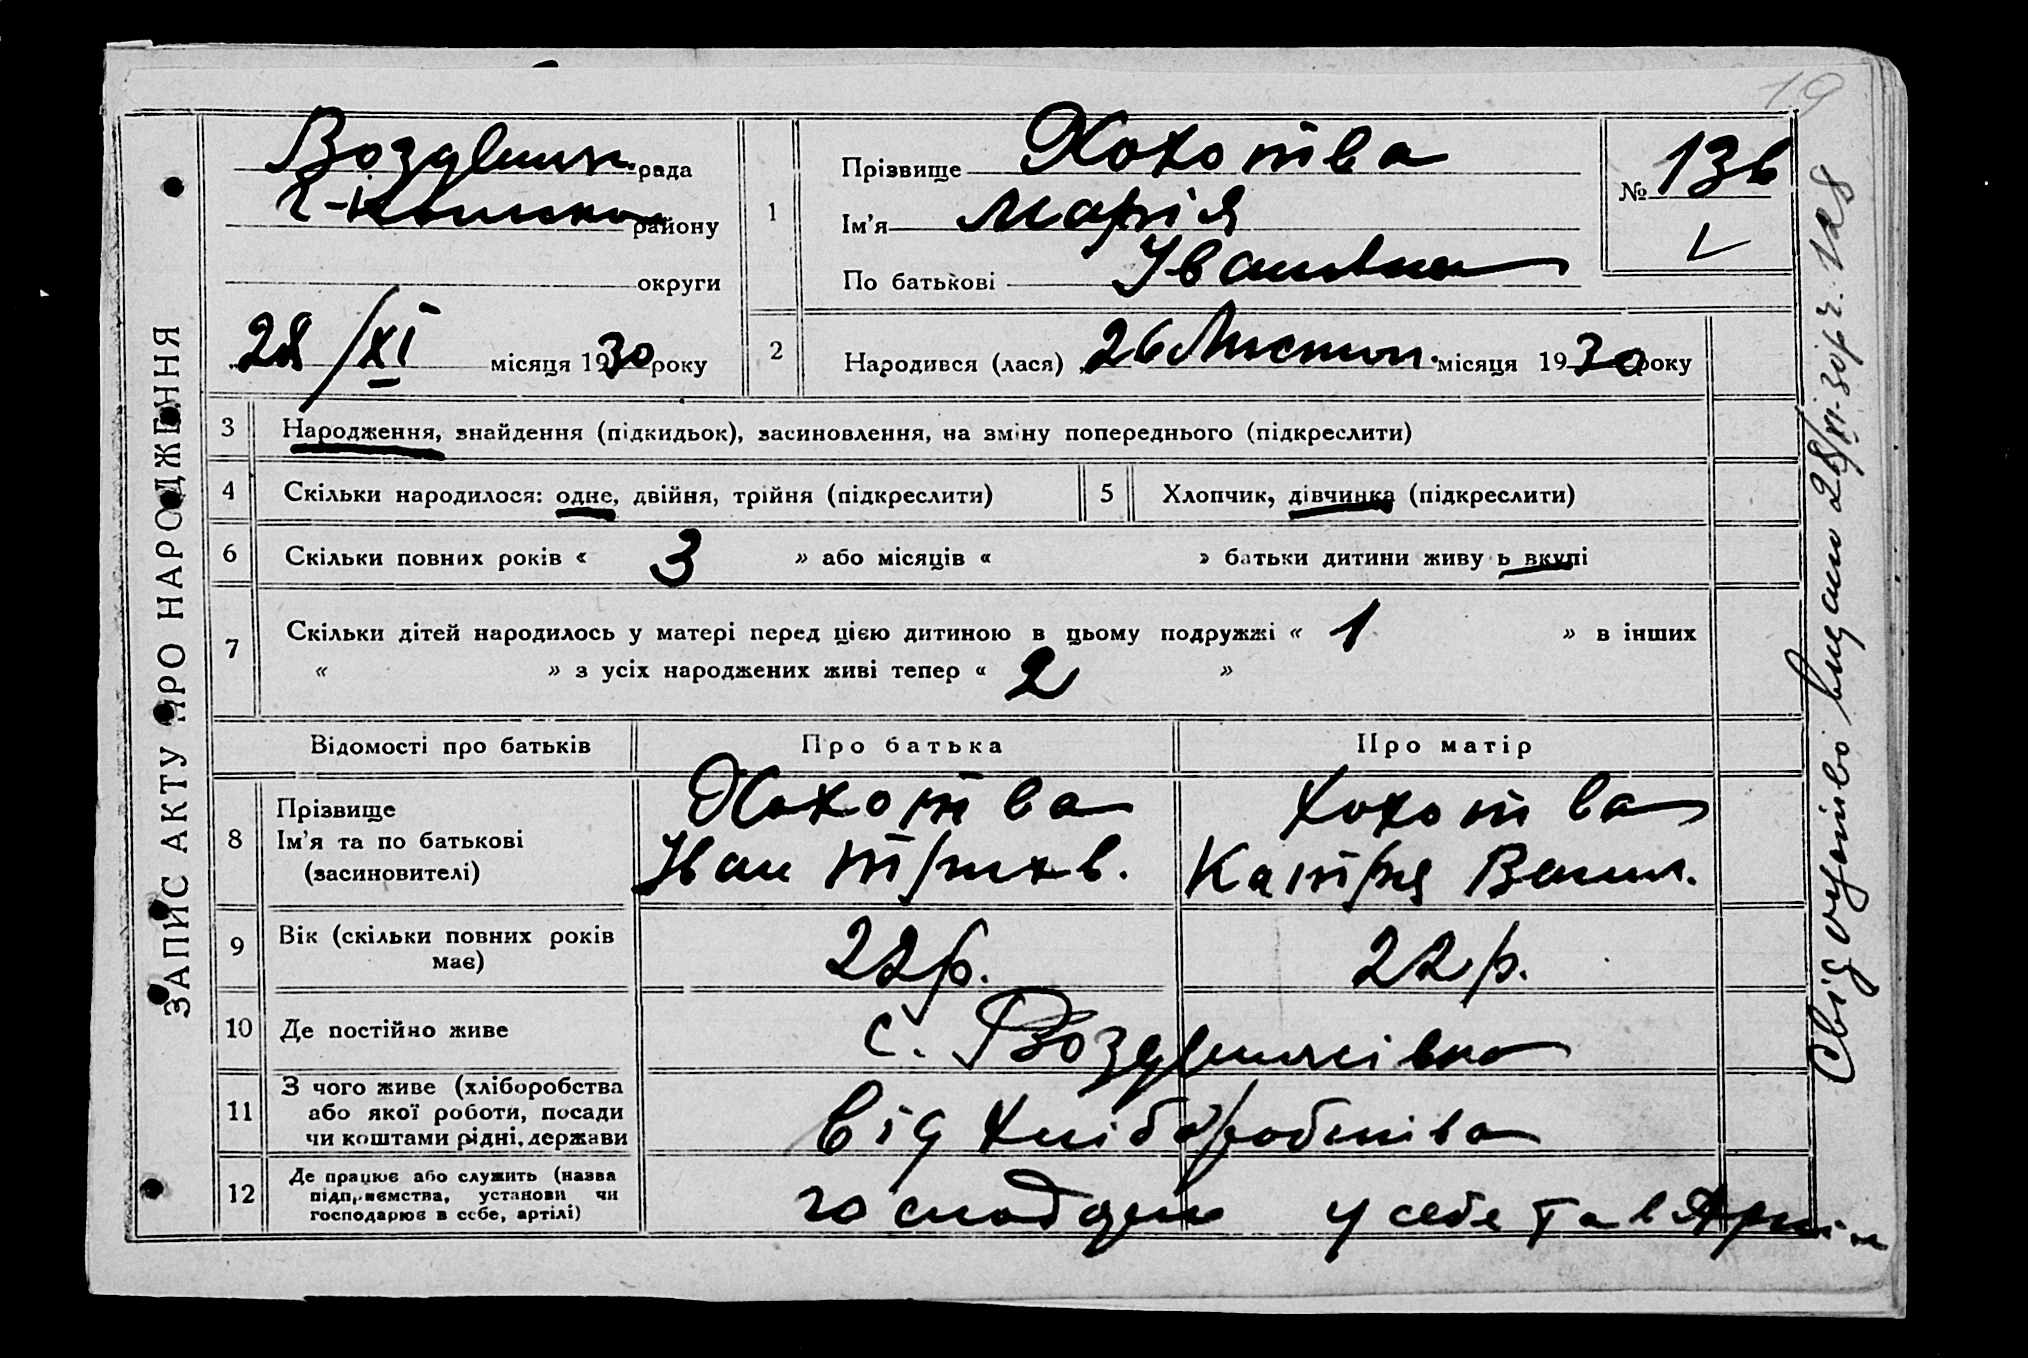 19
ЗАПИС АКТУ ПРО НАРОДЖЕННЯ
Воздвиж. рада
району
округи
28/XI місяця 1930 року
1
Прізвище Хохотва
Ім'я Марія
По батькові Іванівна
№ 136
2
Народився (лася) 26 Листоп. місяця 1930 року
3
Народження, знайдення (підкидьок), засиновлення, на зміну попереднього (підкреслити)
4
Скільки народилося: одне, двійня, трійня (підкреслити)
5
Хлопчик, дівчинка (підкреслити)
6
Скільки повних років « 3 » або місяців « » батьки дитини живу ь вкупі
7
Скільки дітей народилось у матері перед цією дитиною в цьому подружжі « 1 » в інших
« » з усіх народжених живі тепер « 2 »
Відомості про батьків
Про батька
Про матір
8
Прізвище
Ім'я та по батькові
(засиновителі)
Хохотва
Іван
Хохотва
Катря Васил.
9
Вік (скільки повних років
має)
22 р.
22 р.
10
Де постійно живе
с. Воздвижівка
11
З чого живе (хліборобства
або якої роботи, посади
чи коштами рідні, держави
від хліборобства
12
Де працює або служить (назва
підприємства, установи чи
господарює в себе, артілі)
у себе та в
Свідоцтво видано 28/XI-30р. ч. 128